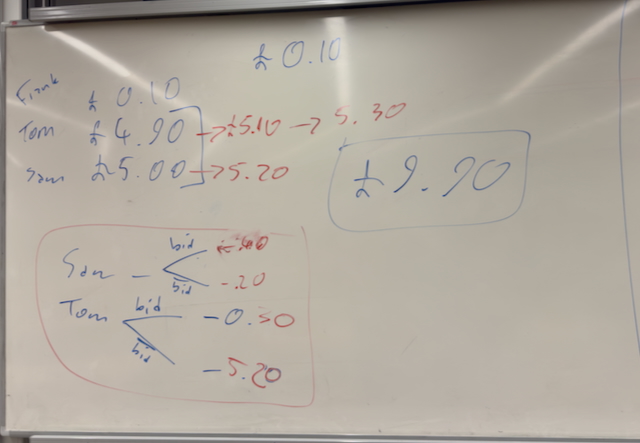 £0.10
Frank £ 0.10
Tom £4.90 → £5.10 → 5.30
Sam £5.00 → 5.20
£9.90
bid
Sam –
bid -.20
Tom bid -0.30
bid -5.20